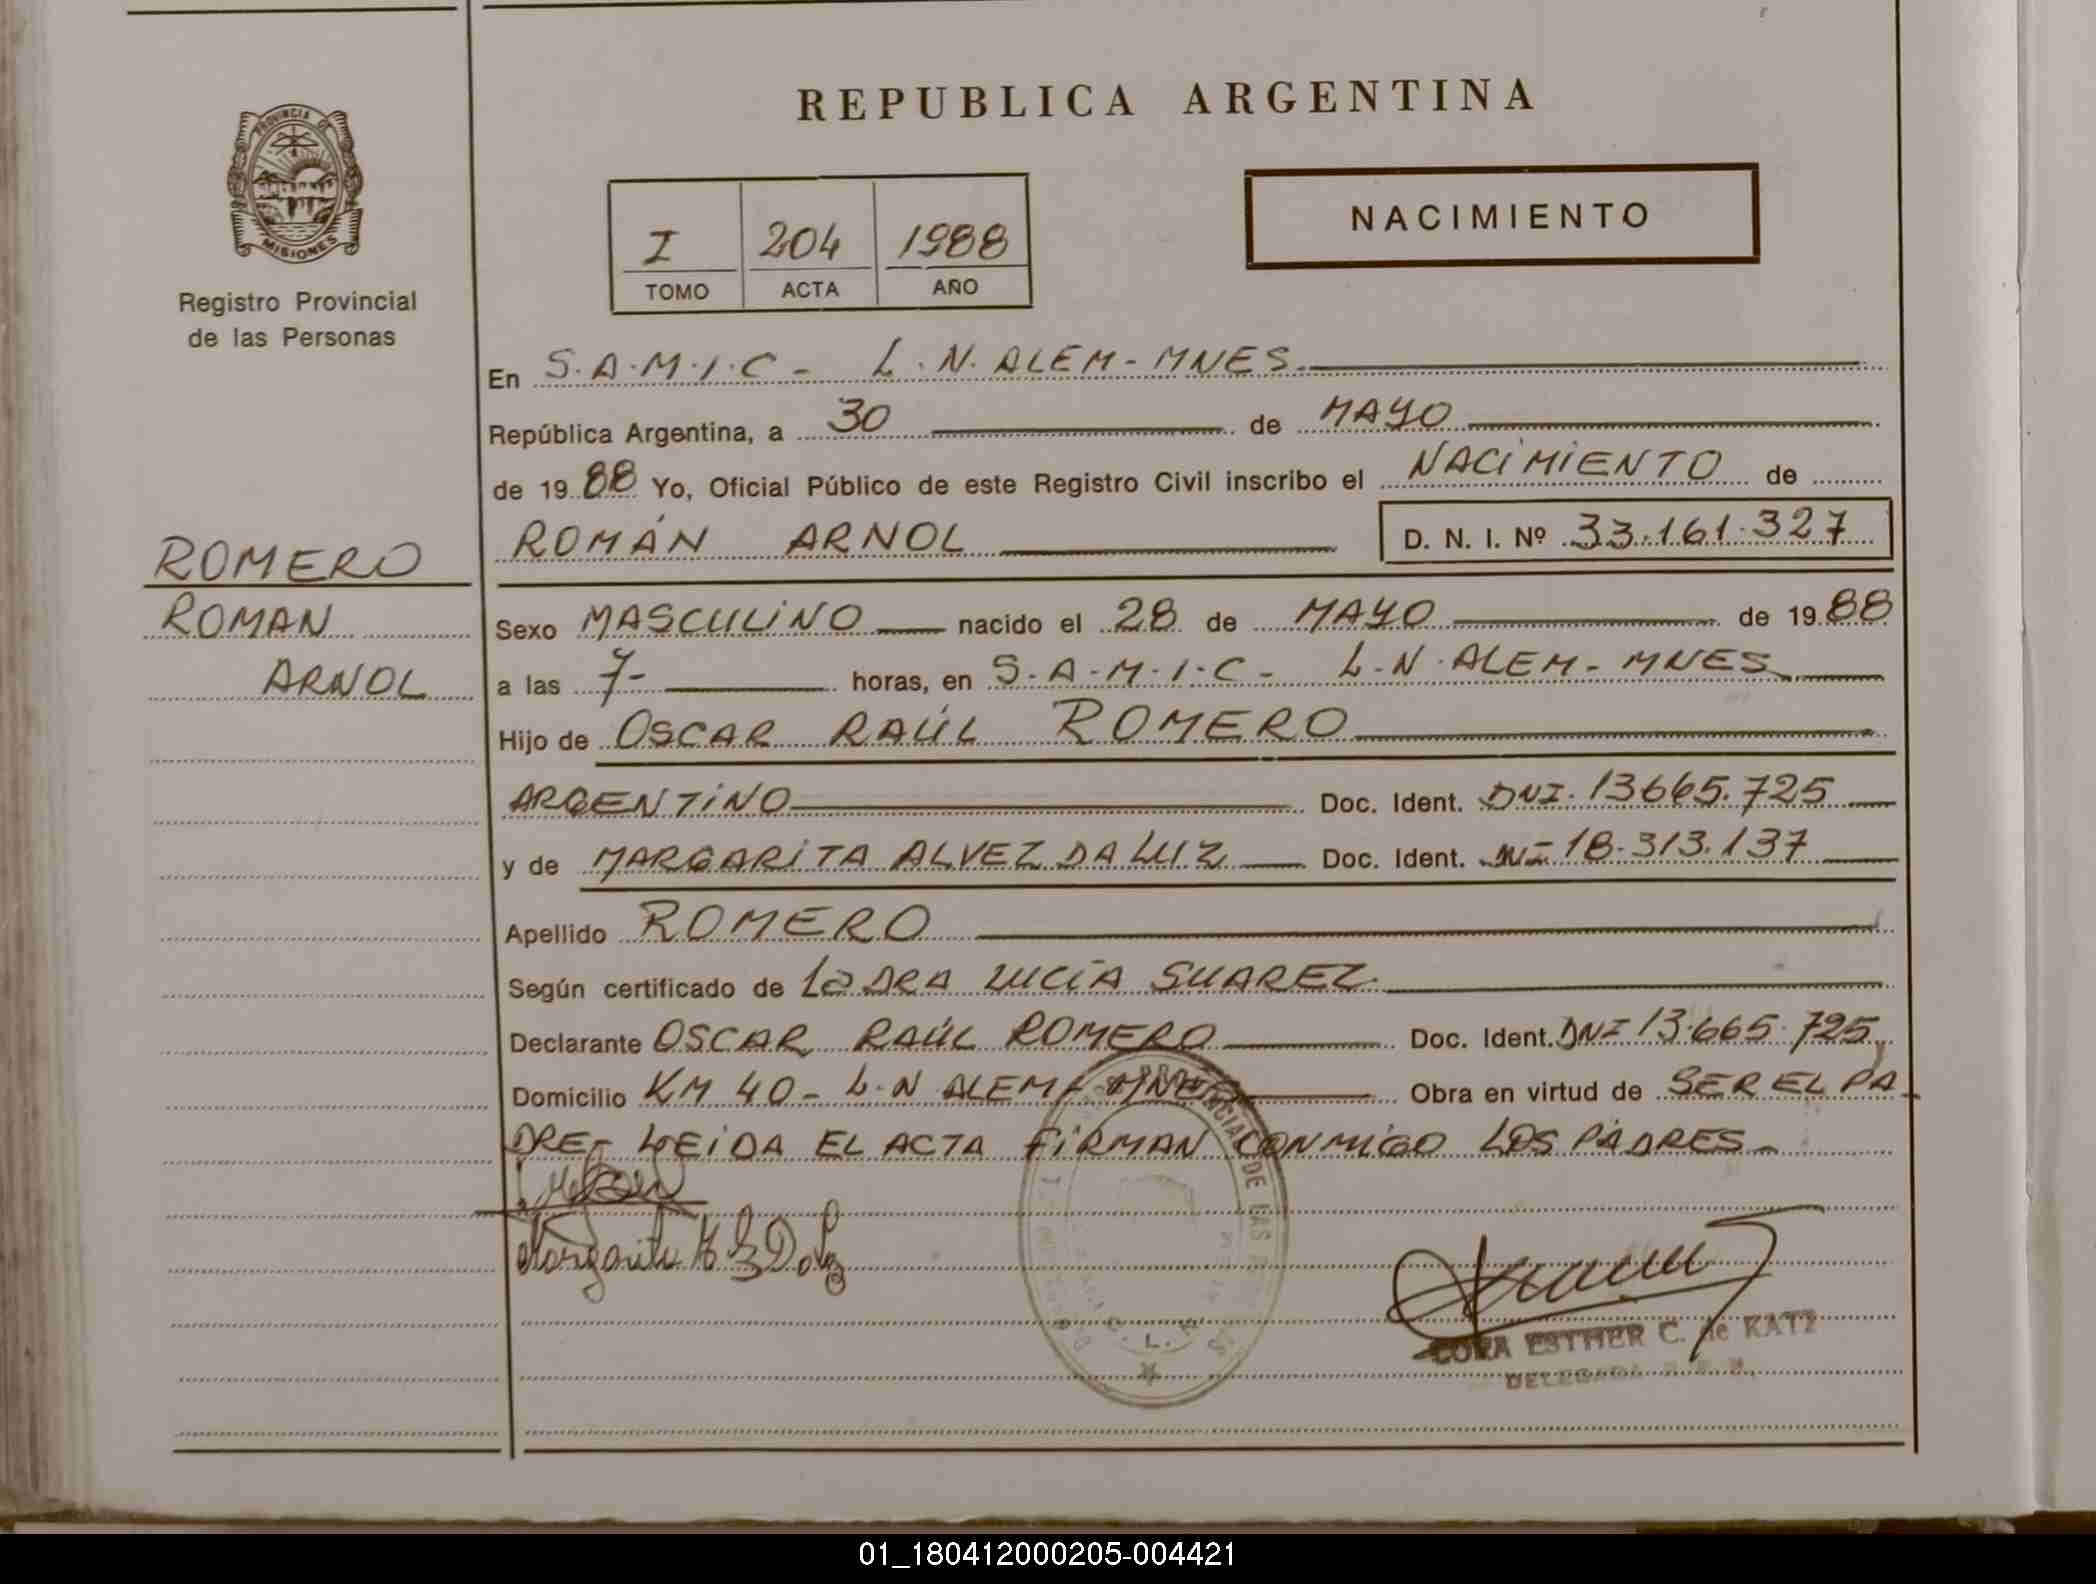 REPUBLICA ARGENTINA
PROVINCIA DE
MISIONES
Registro Provincial
de las Personas
I 204 1988
TOMO ACTA AÑO
NACIMIENTO
En S.A.M.I.C - L.N. ALEM - MNES.
República Argentina, a 30 de MAYO
de 1988 Yo, Oficial Público de este Registro Civil inscribo el NACIMIENTO de
ROMÁN ARNOL D. N. I. Nº 33.161.327
ROMERO
ROMAN
ARNOL
Sexo MASCULINO nacido el 28 de MAYO de 1988
a las 7- horas, en S.A.M.I.C - L.N. ALEM - MNES
Hijo de OSCAR RAÚL ROMERO
ARGENTINO Doc. Ident. DNI. 13665.725
y de MARGARITA ALVEZ DA LUZ Doc. Ident. DNI 18.313.137
Apellido ROMERO
Según certificado de La DRA LUCÍA SUAREZ
Declarante OSCAR RAÚL ROMERO Doc. Ident. DNI 13.665.725
Domicilio KM 40 - L.N ALEM - MNES Obra en virtud de SER EL PA
DRE - LEIDA EL ACTA FIRMAN CONMIGO LOS PADRES -
Margarita
PROVINCIAL DE LAS
CORA ESTHER C. de KATZ
DELEGADA
01_180412000205-004421